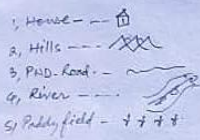 1, House - - -
2, Hills - - -
3, PWD-Road - -
4, River - - -
5, Paddy field -